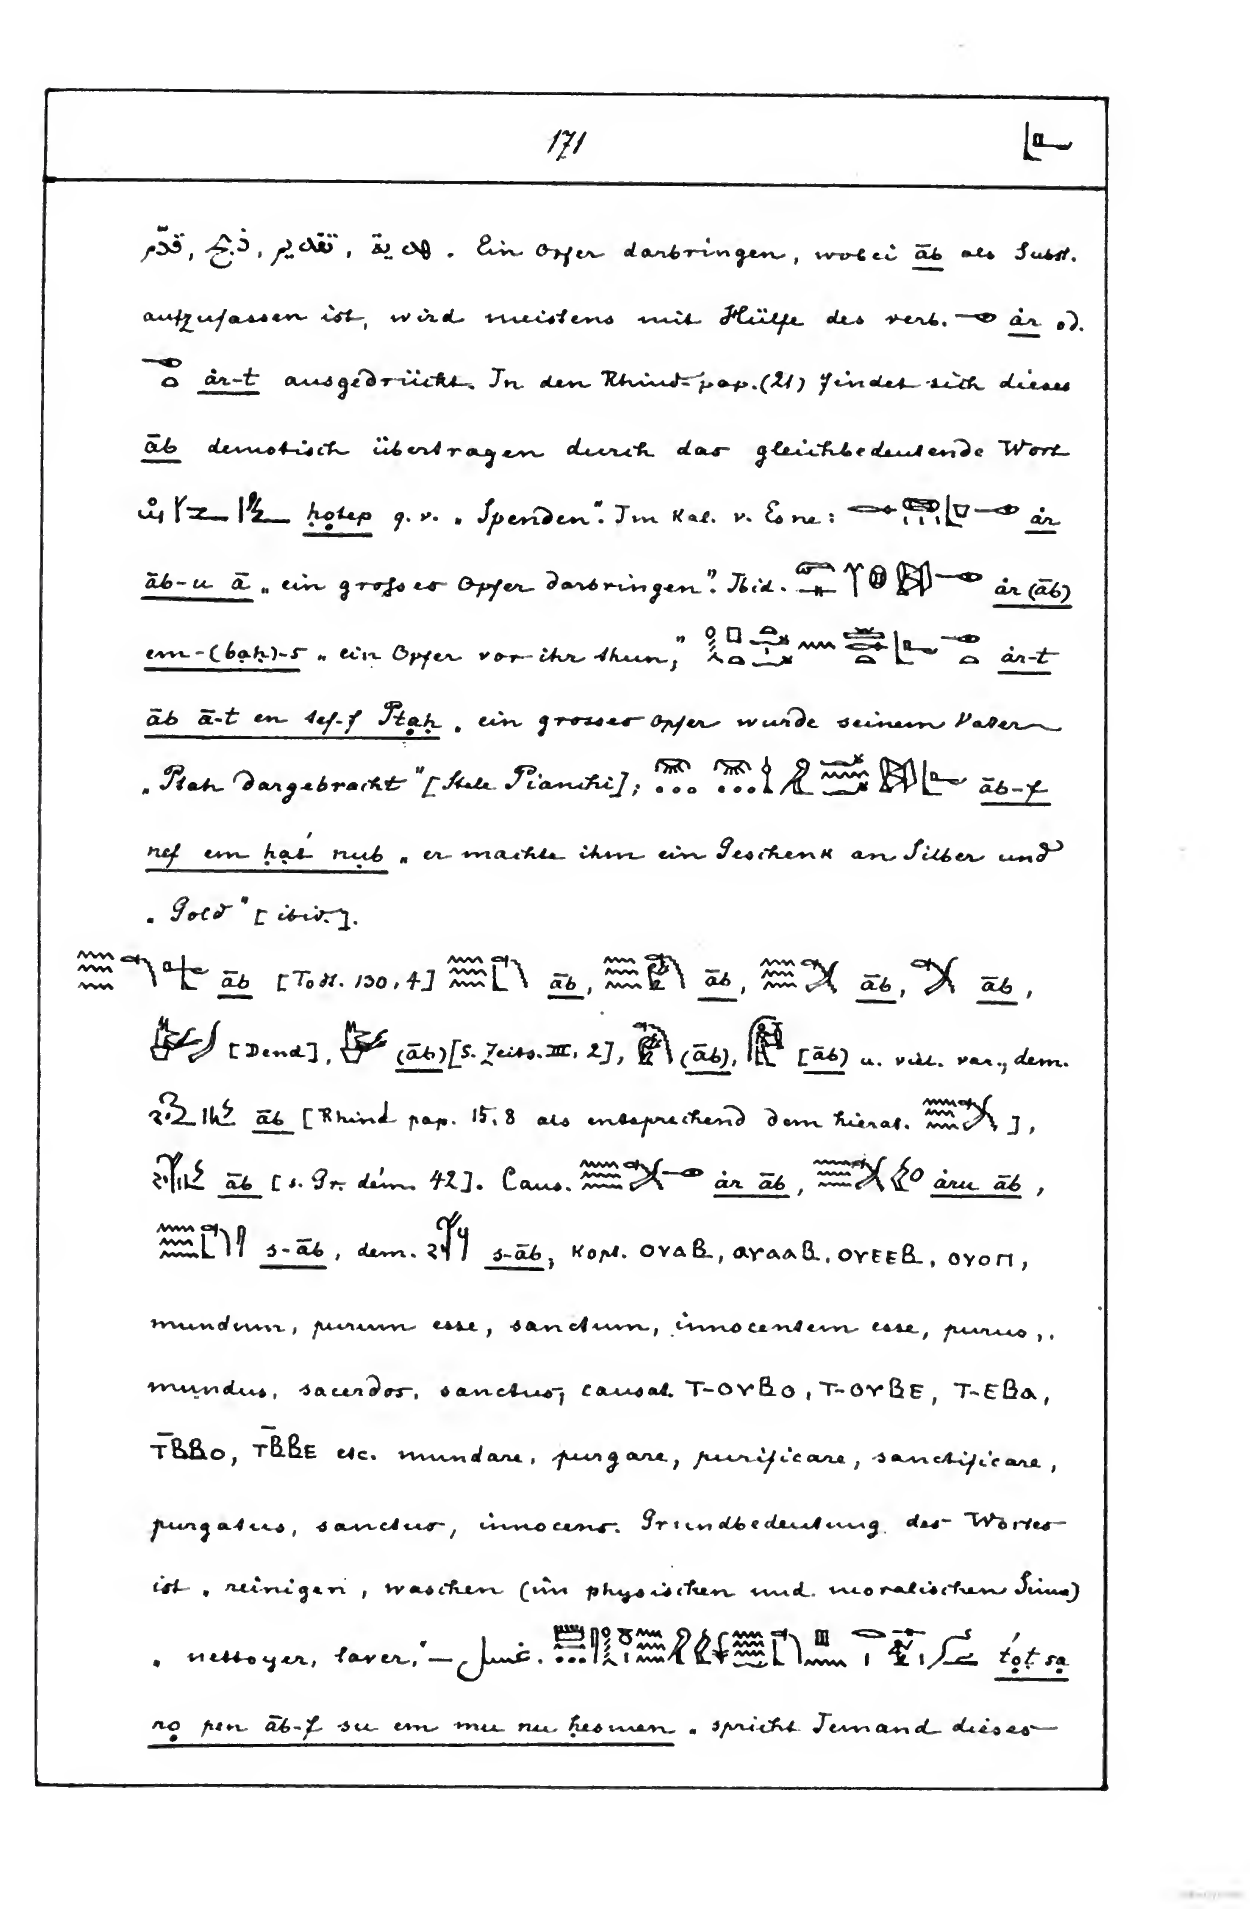 171
قدّم, ذبح, تقديم, هدية. Ein Opfer darbringen, wobei āb als Subst.
aufzufassen ist, wird meistens mit Hülfe des verb. ȧr od.
ȧr-t ausgedrückt. In den Rhind-pap. (21) findet sich dieses
āb demotisch übertragen durch das gleichbedeutende Wort
ḥotep q. v. „Spenden". Im Kal. v. Esne: ȧr
āb-u ā „ein grosses Opfer darbringen". Ibid. ȧr (āb)
em-(baḥ)-s „ein Opfer vor ihr thun," ȧr-t
āb ā-t en tef-f Ptaḥ „ein grosses Opfer wurde seinem Vater
„Ptah dargebracht" [Stele Pianchi]; āb-f
nef em ḥat́ nub „er machte ihm ein Geschenk an Silber und
„Gold" [ibid.].
āb [Todt. 130, 4] āb, āb, āb, āb,
[Dend], (āb) [s. Zeits. III, 2], (āb), [āb) u. viel. var., dem.
āb [Rhind pap. 15, 8 als entsprechend dem hierat. ],
āb [s. Gr. dém. 42]. Caus. ȧr āb, ȧru āb,
s-āb, dem. s-āb, Kopt. ⲟⲩⲁⲃ, ⲟⲩⲁⲁⲃ, ⲟⲩⲉⲉⲃ, ⲟⲩⲟⲡ,
mundum, purum esse, sanctum, innocentem esse, purus,
mundus, sacerdos, sanctus; causat. ⲧ-ⲟⲩⲃⲟ, ⲧ-ⲟⲩⲃⲉ, ⲧ-ⲉⲃⲁ,
ⲧ̄ⲃⲃⲟ, ⲧⲃ̄ⲃⲉ etc. mundare, purgare, purificare, sanctificare,
purgatus, sanctus, innocens. Grundbedeutung des Wortes
ist „reinigen, waschen (im physischen und moralischen Sinne)
„nettoyer, laver," — غسل. t́oṭ sa
ro pen āb-f su em mu nu ḥesmen „spricht Jemand dieses